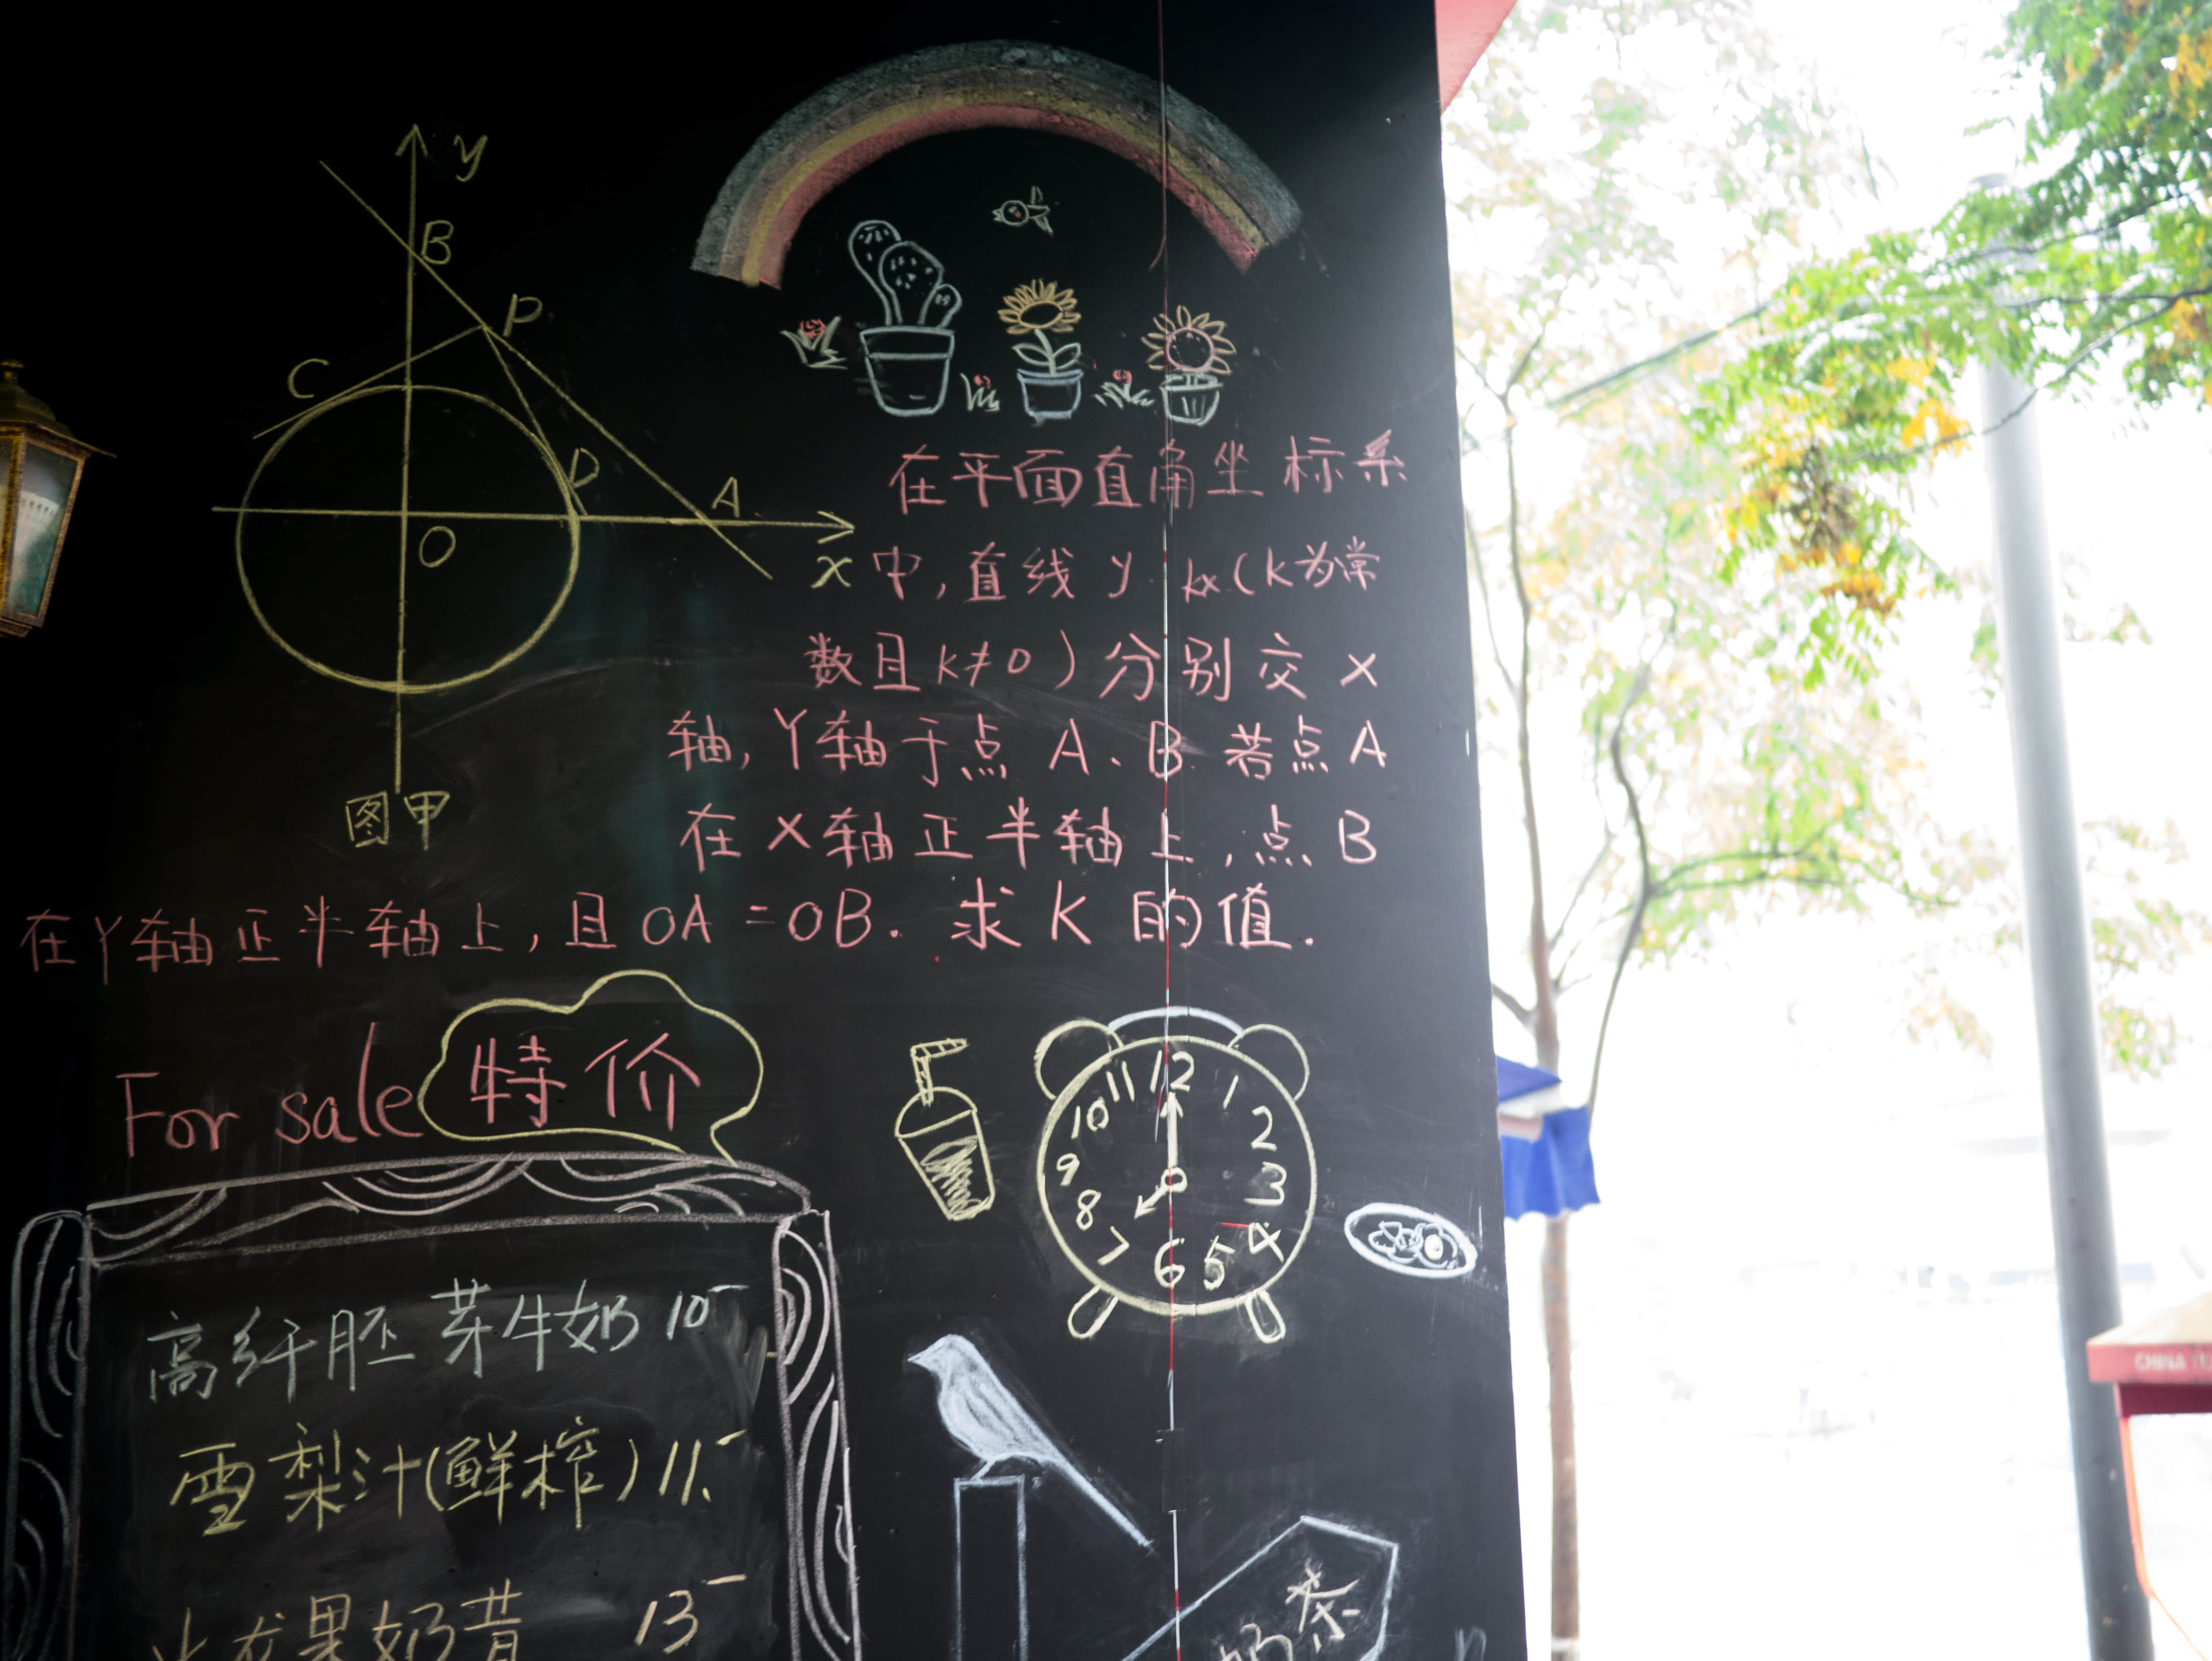 y
B
P
C
D
A
O
x
图甲
在平面直角坐标系
中,直线 y kx (K为常
数且K≠0)分别交X
轴,Y轴于点 A、B 若点A
在X轴正半轴上,点B
在Y轴正半轴上,且OA=OB.求K的值.
For sale 特价
12
11 1
10 2
9 3
8 4
7 6 5
高纤胚芽牛奶 10-
雪梨汁(鲜榨) 11.-
火龙果奶昔 13-
奶茶
CHINA